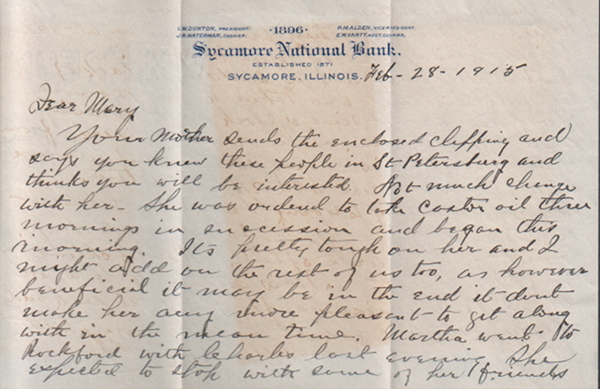 S.M. DUNTON, PRESIDENT. ·1896· P.M. ALDEN, VICE PRESIDENT.
J.R. WATERMAN, CASHIER. E.M. VARTY, ASST. CASHIER.
Sycamore National Bank.
ESTABLISHED 1871
SYCAMORE, ILLINOIS. Feb- 28-1915
Dear Mary
Your Mother sends the enclosed clipping and
says you knew these people in St Petersburg and
thinks you will be interested. Not much change
with her- She was ordered to take castor oil three
mornings in succession and began this
morning. Its pretty tough on her and I
might add on the rest of us too, as however
beneficial it may be in the end it dont
make her any more pleasant to get along
with in the mean time. Martha went to
Rockford with Charles last evening. She
expected to stop with some of her friends